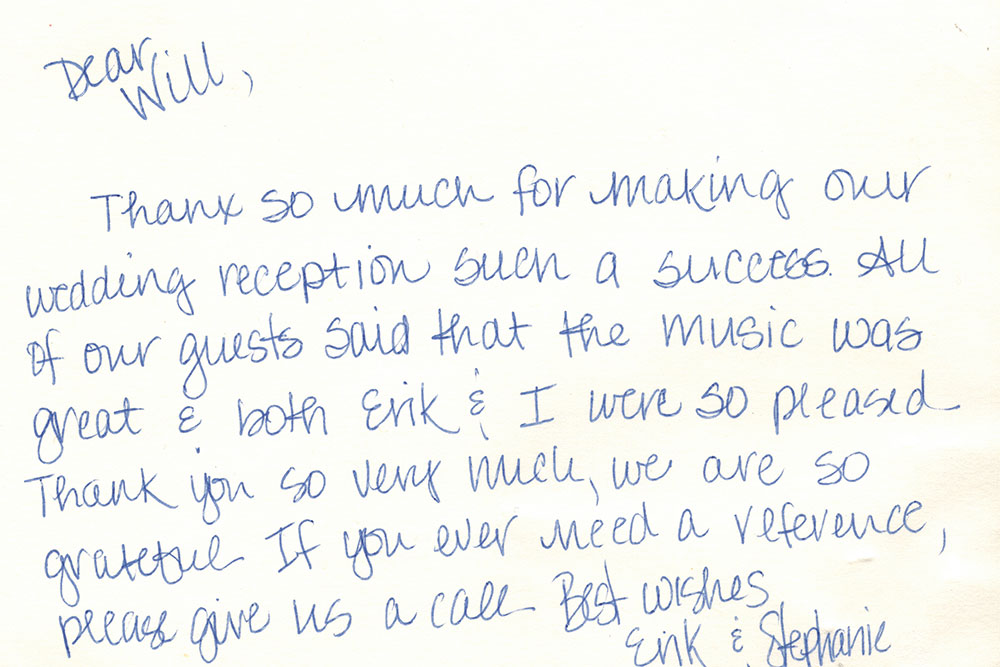 Dear
Will,
Thanx so much for making our
wedding reception such a success. All
of our guests said that the music was
great & both Erik & I were so pleased
Thank you so very much, we are so
grateful If you ever need a reference,
please give us a call Best wishes
Erik & Stephanie